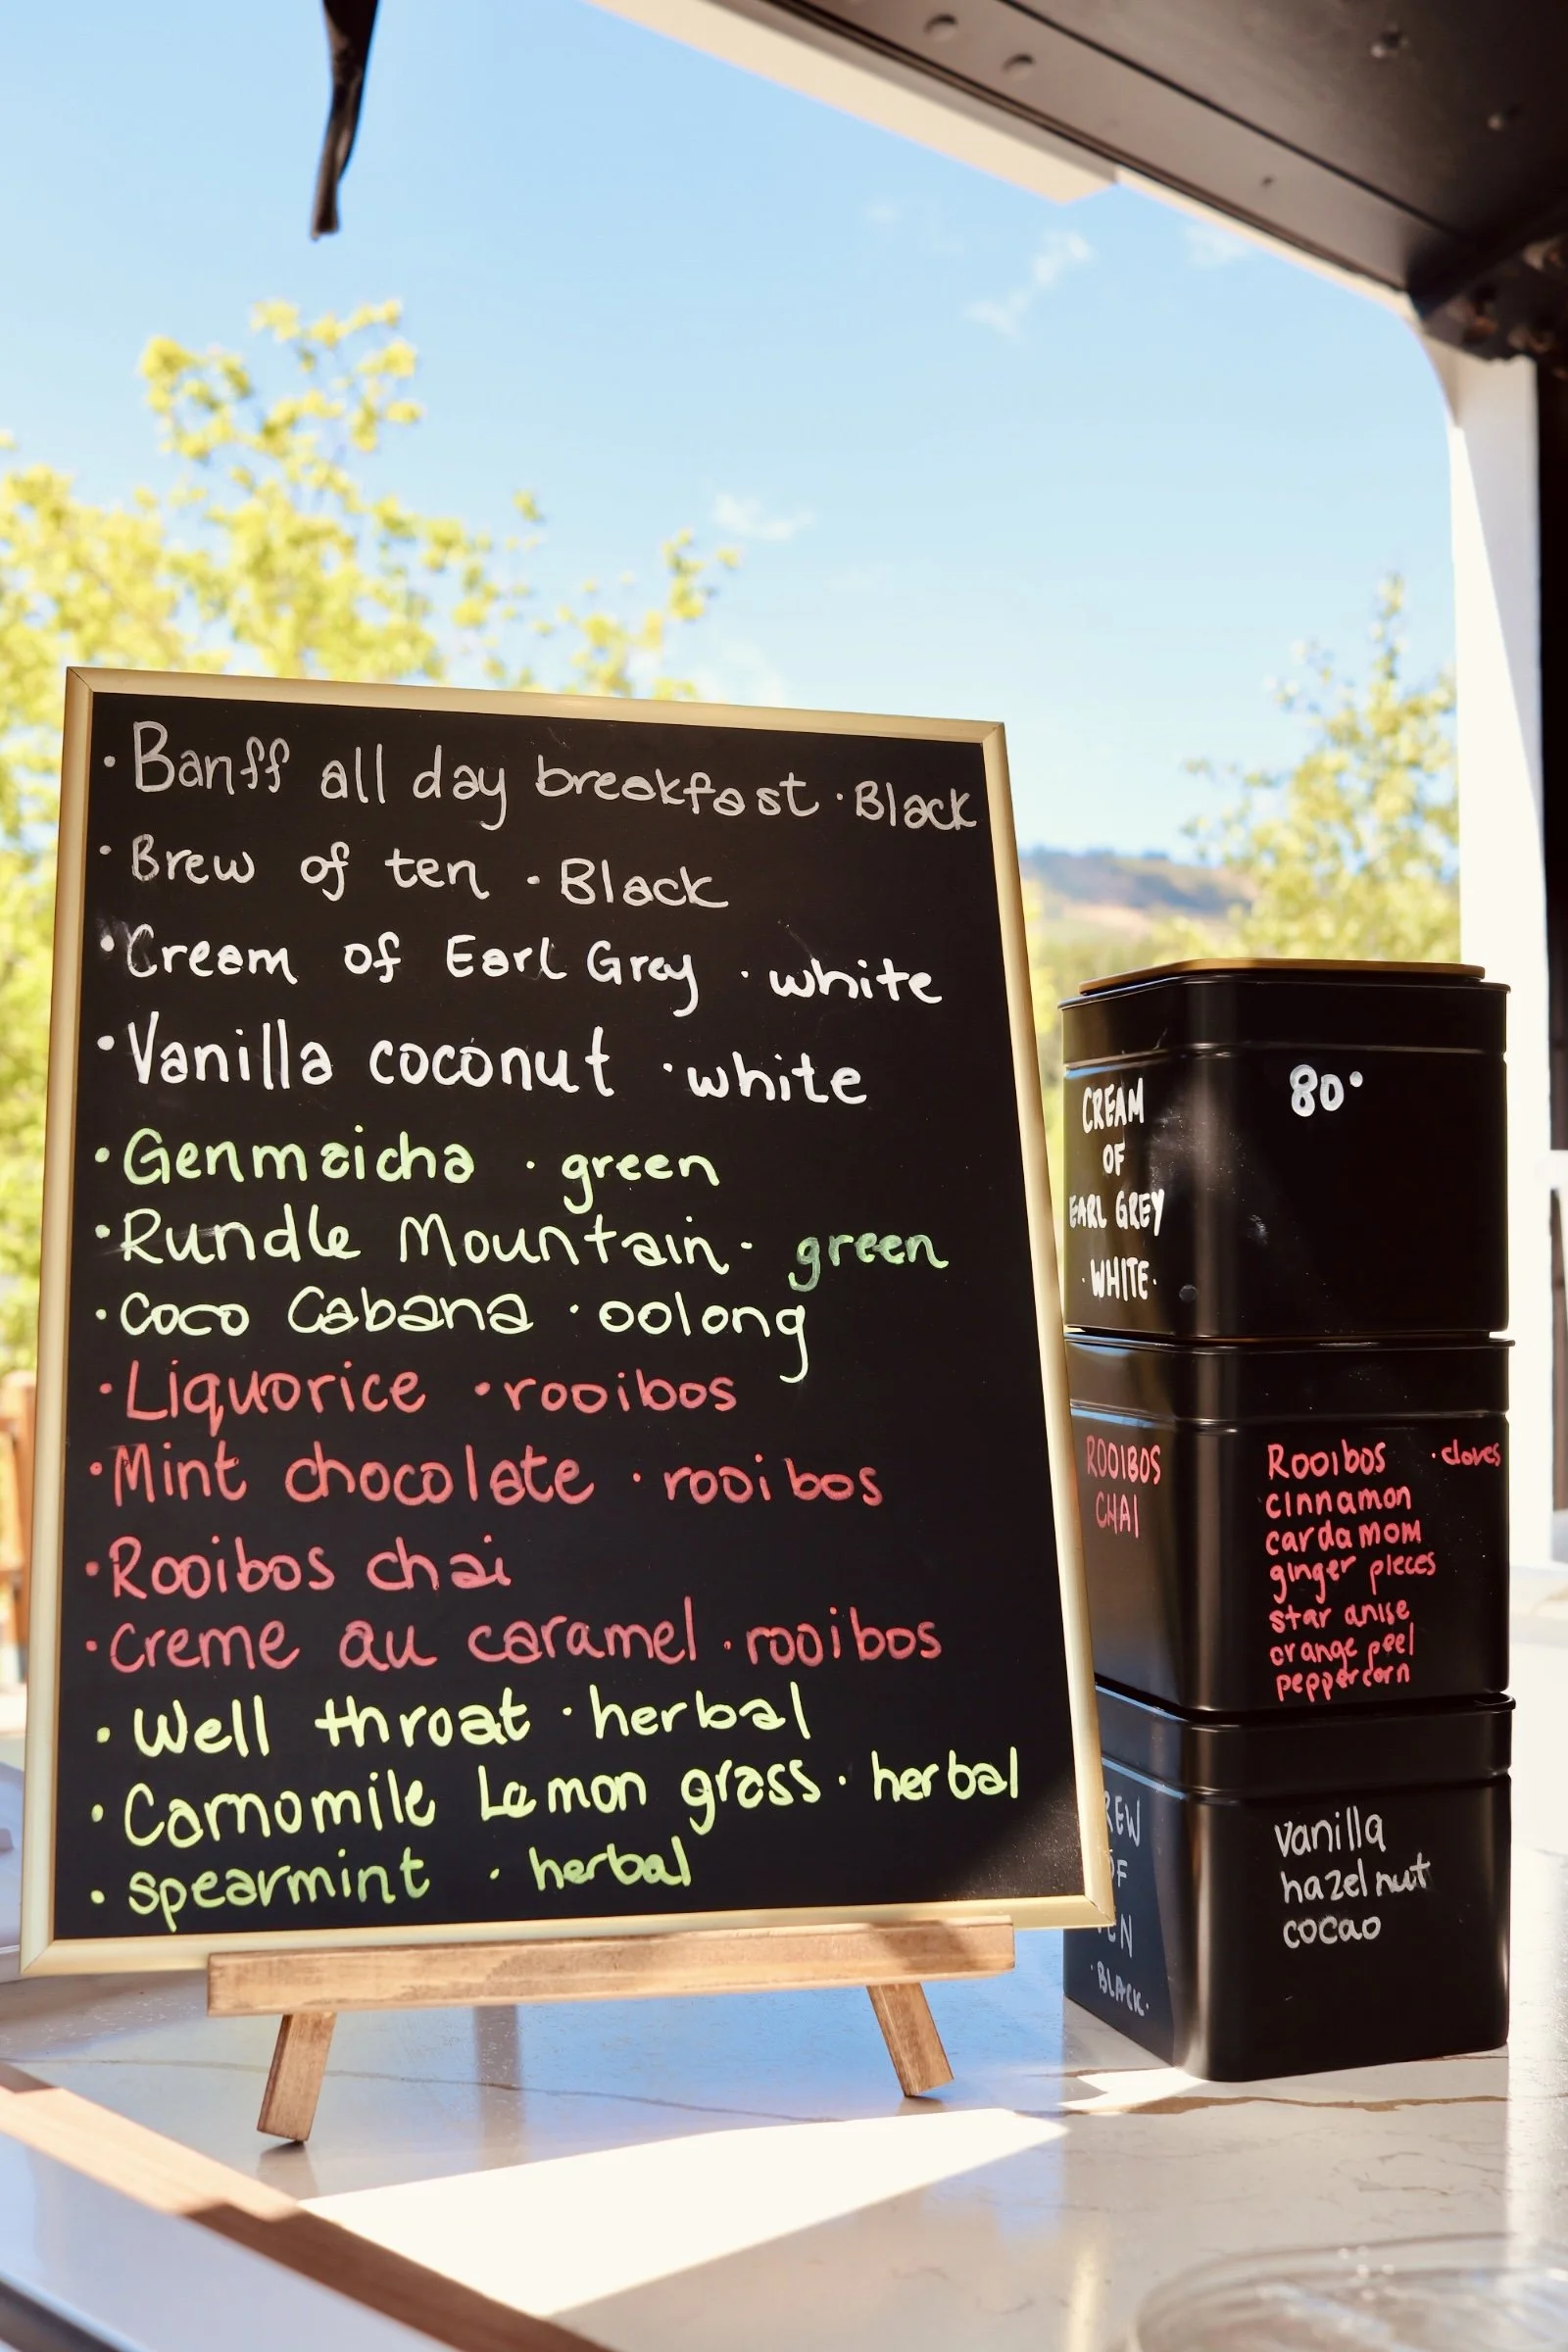 · Banff all day breakfast · Black
· Brew of ten · Black
· Cream of Earl Grey · white
· Vanilla coconut · white
· Genmaicha · green
· Rundle Mountain · green
· Coco Cabana · oolong
· Liquorice · rooibos
· Mint chocolate · rooibos
· Rooibos chai
· Creme au caramel · rooibos
· Well throat · herbal
· Camomile Lemon grass · herbal
· spearmint · herbal
CREAM
OF
EARL GREY
· WHITE ·
80°
ROOIBOS
CHAI
Rooibos · cloves
cinnamon
cardamom
ginger pieces
star anise
orange peel
peppercorn
REW
OF
EN
· BLACK ·
vanilla
hazelnut
cocao